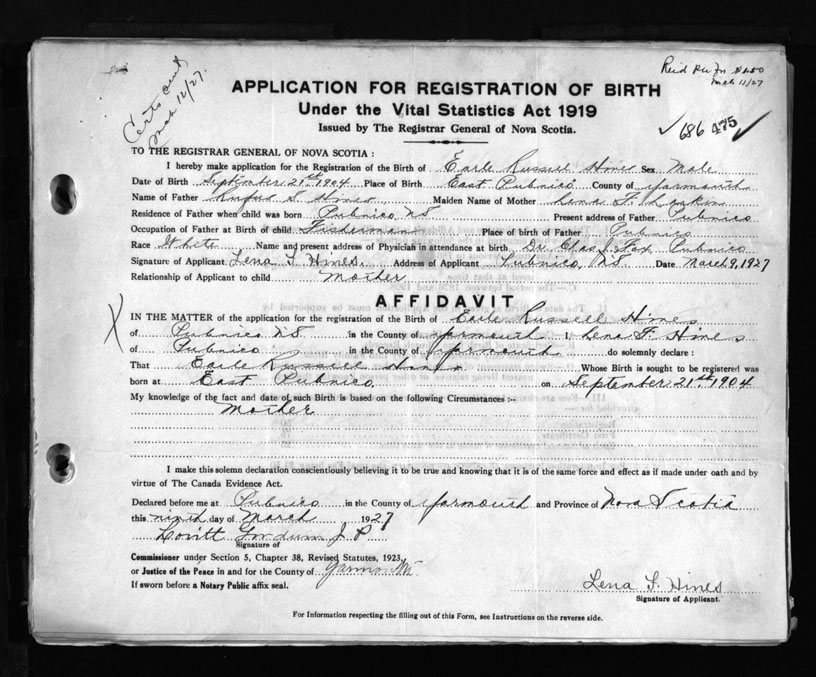 Certs sent
Mch 12/27.
Mch 11/27
APPLICATION FOR REGISTRATION OF BIRTH
Under the Vital Statistics Act 1919
Issued by The Registrar General of Nova Scotia.
686 475
TO THE REGISTRAR GENERAL OF NOVA SCOTIA :
I hereby make application for the Registration of the Birth of Earle Russell Hines Sex Male
Date of Birth September 21st 1904 Place of Birth East Pubnico County of Yarmouth
Name of Father Rufus S. Hines Maiden Name of Mother Lena F.
Residence of Father when child was born Pubnico NS Present address of Father Pubnico
Occupation of Father at Birth of child Fisherman Place of birth of Father Pubnico
Race White Name and present address of Physician in attendance at birth Dr. Chas J. Fox Pubnico
Signature of Applicant Lena F Hines. Address of Applicant Pubnico, NS Date March 9, 1927
Relationship of Applicant to child Mother
AFFIDAVIT
IN THE MATTER of the application for the registration of the Birth of Earle Russell Hines
of Pubnico NS in the County of Yarmouth I, Lena F. Hines
of Pubnico in the County of Yarmouth do solemnly declare :
That Earle Russell Hines Whose Birth is sought to be registered was
born at East Pubnico on September 21st 1904
My knowledge of the fact and date of such Birth is based on the following Circumstances :-
Mother
I make this solemn declaration conscientiously believing it to be true and knowing that it is of the same force and effect as if made under oath and by
virtue of The Canada Evidence Act.
Declared before me at Pubnico in the County of Yarmouth and Province of Nova Scotia
this ninth day of March 1927
Lovitt J P
Signature of
Commissioner under Section 5, Chapter 38, Revised Statutes, 1923,
or Justice of the Peace in and for the County of Yarmouth
If sworn before a Notary Public affix seal.
Lena F. Hines
Signature of Applicant.
For Information respecting the filling out of this Form, see Instructions on the reverse side.